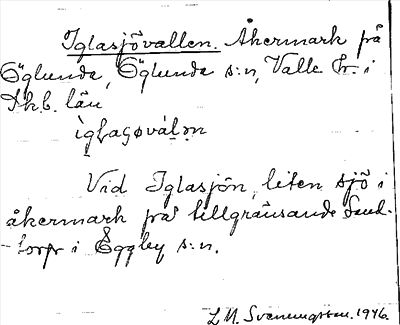 Iglasjövallen. Åkermark på
Öglunda, Öglunda s:n, Valle hr. i
Skb. län
ìglaʂøváḷən
Vid Iglasjön, liten sjö i
åkermark på tillgränsande Sand-
torp i Eggby s:n.
L. M. Svenungsson. 1946.